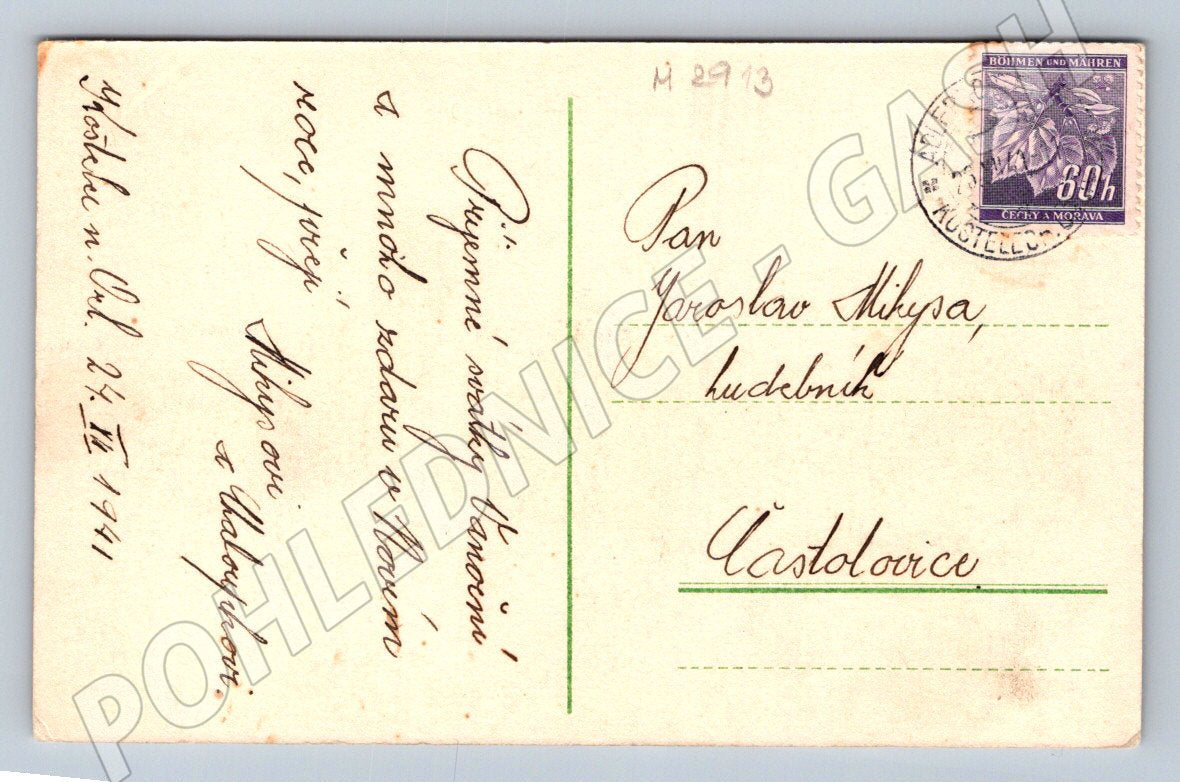 M 2913
BÖHMEN UND MÄHREN
60h
ČECHY A MORAVA
Pan
Jaroslav Mikysa,
hudebník
Častolovice
Příjemné svátky Vánoční
a mnoho zdaru v Novém
roce, přejí
Mikysovi
a Chaloupkovi.
Kostelec n. Orl. 24. XII 1941
POHLEDNICE.GASH